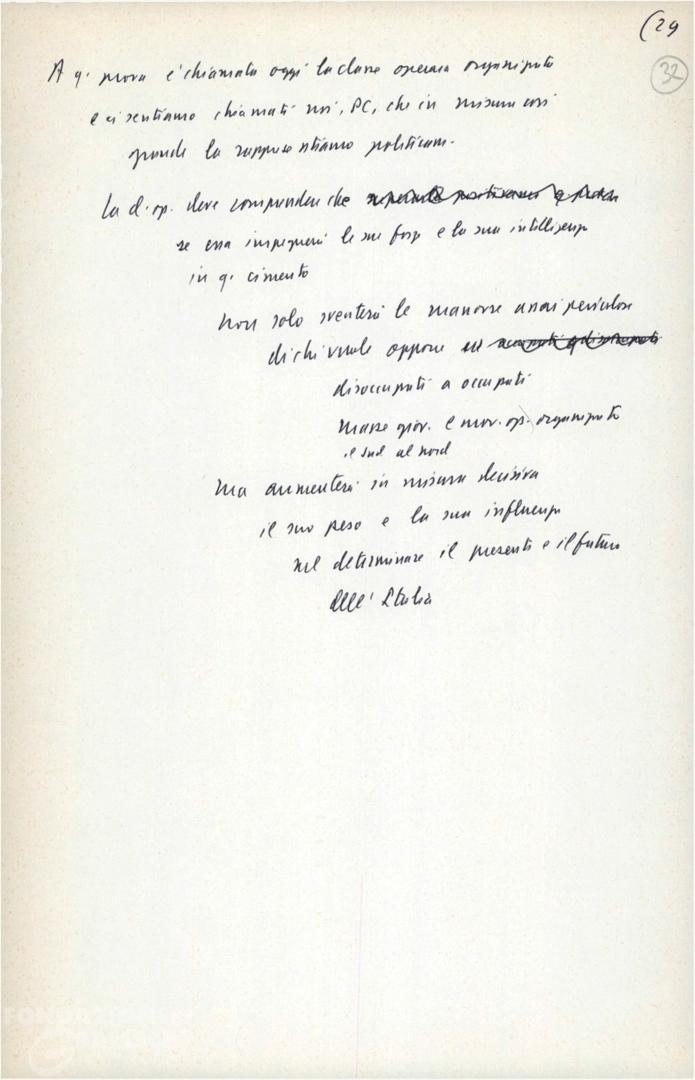 (29
32
A q. prova è chiamata oggi la classe operaia organizzata
e ci sentiamo chiamati noi, PC, che in misura così
grande la rappresentiamo politicam.
La cl. op. deve comprendere che
se essa impegnerà le sue forze e la sua intelligenza
in q. cimento
non solo sventerà le manovre assai pericolose
di chi vuole opporre
disoccupati a occupati
masse giov. e mov. op. organizzato
il sud al nord
ma aumenterà in misura decisiva
il suo peso e la sua influenza
nel determinare il presente e il futuro
dell'Italia
FONDAZIONE
GRAMSCI